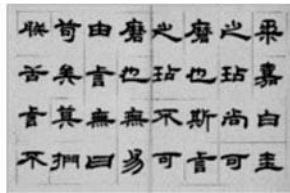 柔嘉白圭
之玷尚可
磨也斯言
之玷不可
磨也無易
由言無曰
苟矣莫捫
朕舌言不